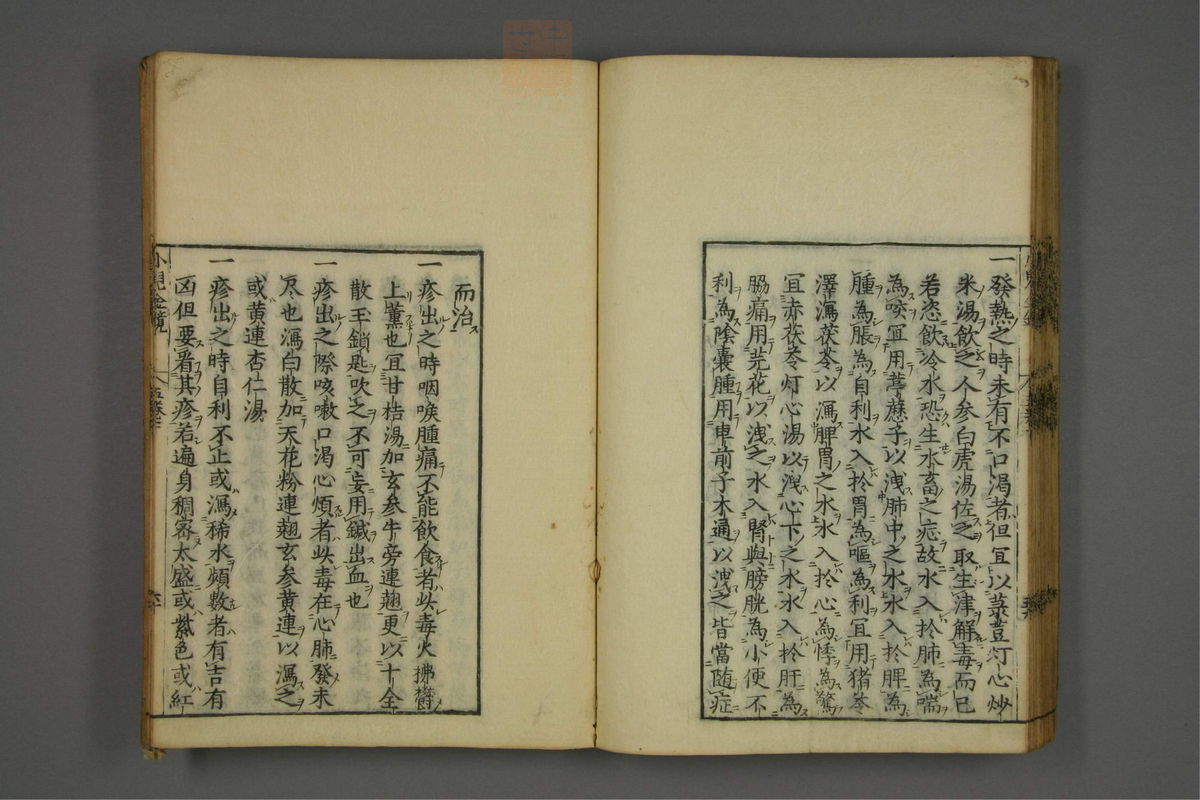 一發熱之時未有不口渴者但冝以菉荳灯心炒
米湯飲之人参白虎湯佐之取生津解毒而已
若恣飲冷水恐生水畜之症故水入於肺為喘
為咳冝用葶藶子以洩肺中之水水入於脾為
腫為脹為自利水入於胃為嘔為利冝用猪苓
澤瀉茯苓以瀉脾胃之水水入於心為悸為驚
冝赤茯苓灯心湯以洩心下之水水入於肝為
脇痛用芫花以洩之水入腎與膀胱為小便不
利為陰囊腫用車前子木通以洩之皆當随症
而治
一疹出之時咽喉腫痛不能飲食者此毒火拂欝
上薫也冝甘桔湯加玄参牛旁連翹更以十全
散玉鎖匙吹之不可妄用鍼出血也
一疹出之際咳嗽口渴心煩者此毒在心肺發未
尽也瀉白散加天花粉連翹玄参黄連以瀉之
或黄連杏仁湯
一疹出之時自利不止或瀉稀水頻數者有吉有
凶但要看其疹若遍身稠密太盛或紫色或紅
小兒金鏡